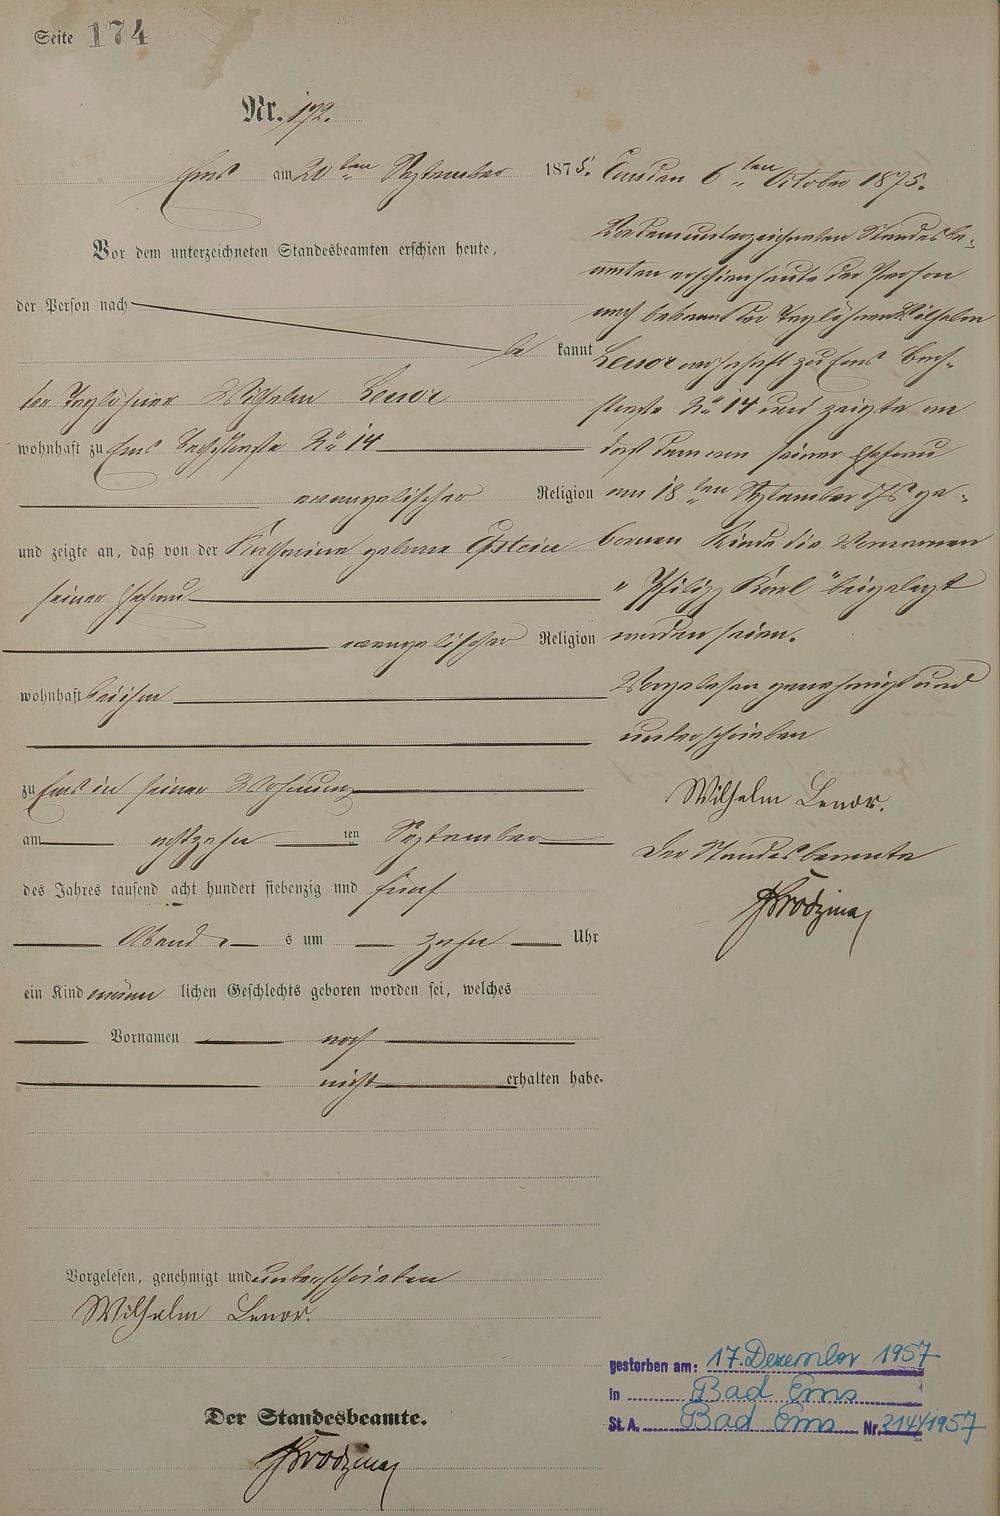 Seite 174
Nr. 172.
Ems am 20ten September 1875.
Vor dem unterzeichneten Standesbeamten erschien heute,
der Person nach
be kannt
der Taglöhner Wilhelm Lenor
wohnhaft zu Ems Bachstraße No 14
evangelischer Religion
und zeigte an, daß von der Katharina geborne Epstein
seiner Ehefrau
evangelischer Religion
wohnhaft bei ihm
zu Ems in seiner Wohnung
am achtzehn ten September
des Jahres tausend acht hundert siebenzig und fünf
Abends um zehn Uhr
ein Kind männlichen Geschlechts geboren worden sei, welches
Vornamen noch
nicht erhalten habe.
Vorgelesen, genehmigt und unterschrieben
Wilhelm Lenor.
Der Standesbeamte.
Ems den 6ten October 1875.
Vor dem unterzeichneten Standesbe-
amten erschien heute der Person
nach bekannt der Taglöhner Wilhelm
Lenor wohnhaft zu Ems Bach-
straße No 14 und zeigte an
daß dem von seiner Ehefrau
am 18ten September ds Js ge-
bornen Kinde die Vornamen
"Philipp Karl" beigelegt
worden seien.
Vorgelesen genehmigt und
unterschrieben
Wilhelm Lenor.
Der Standesbeamte
gestorben am: 17. Dezember 1957
in Bad Ems
St. A. Bad Ems Nr. 214/1957